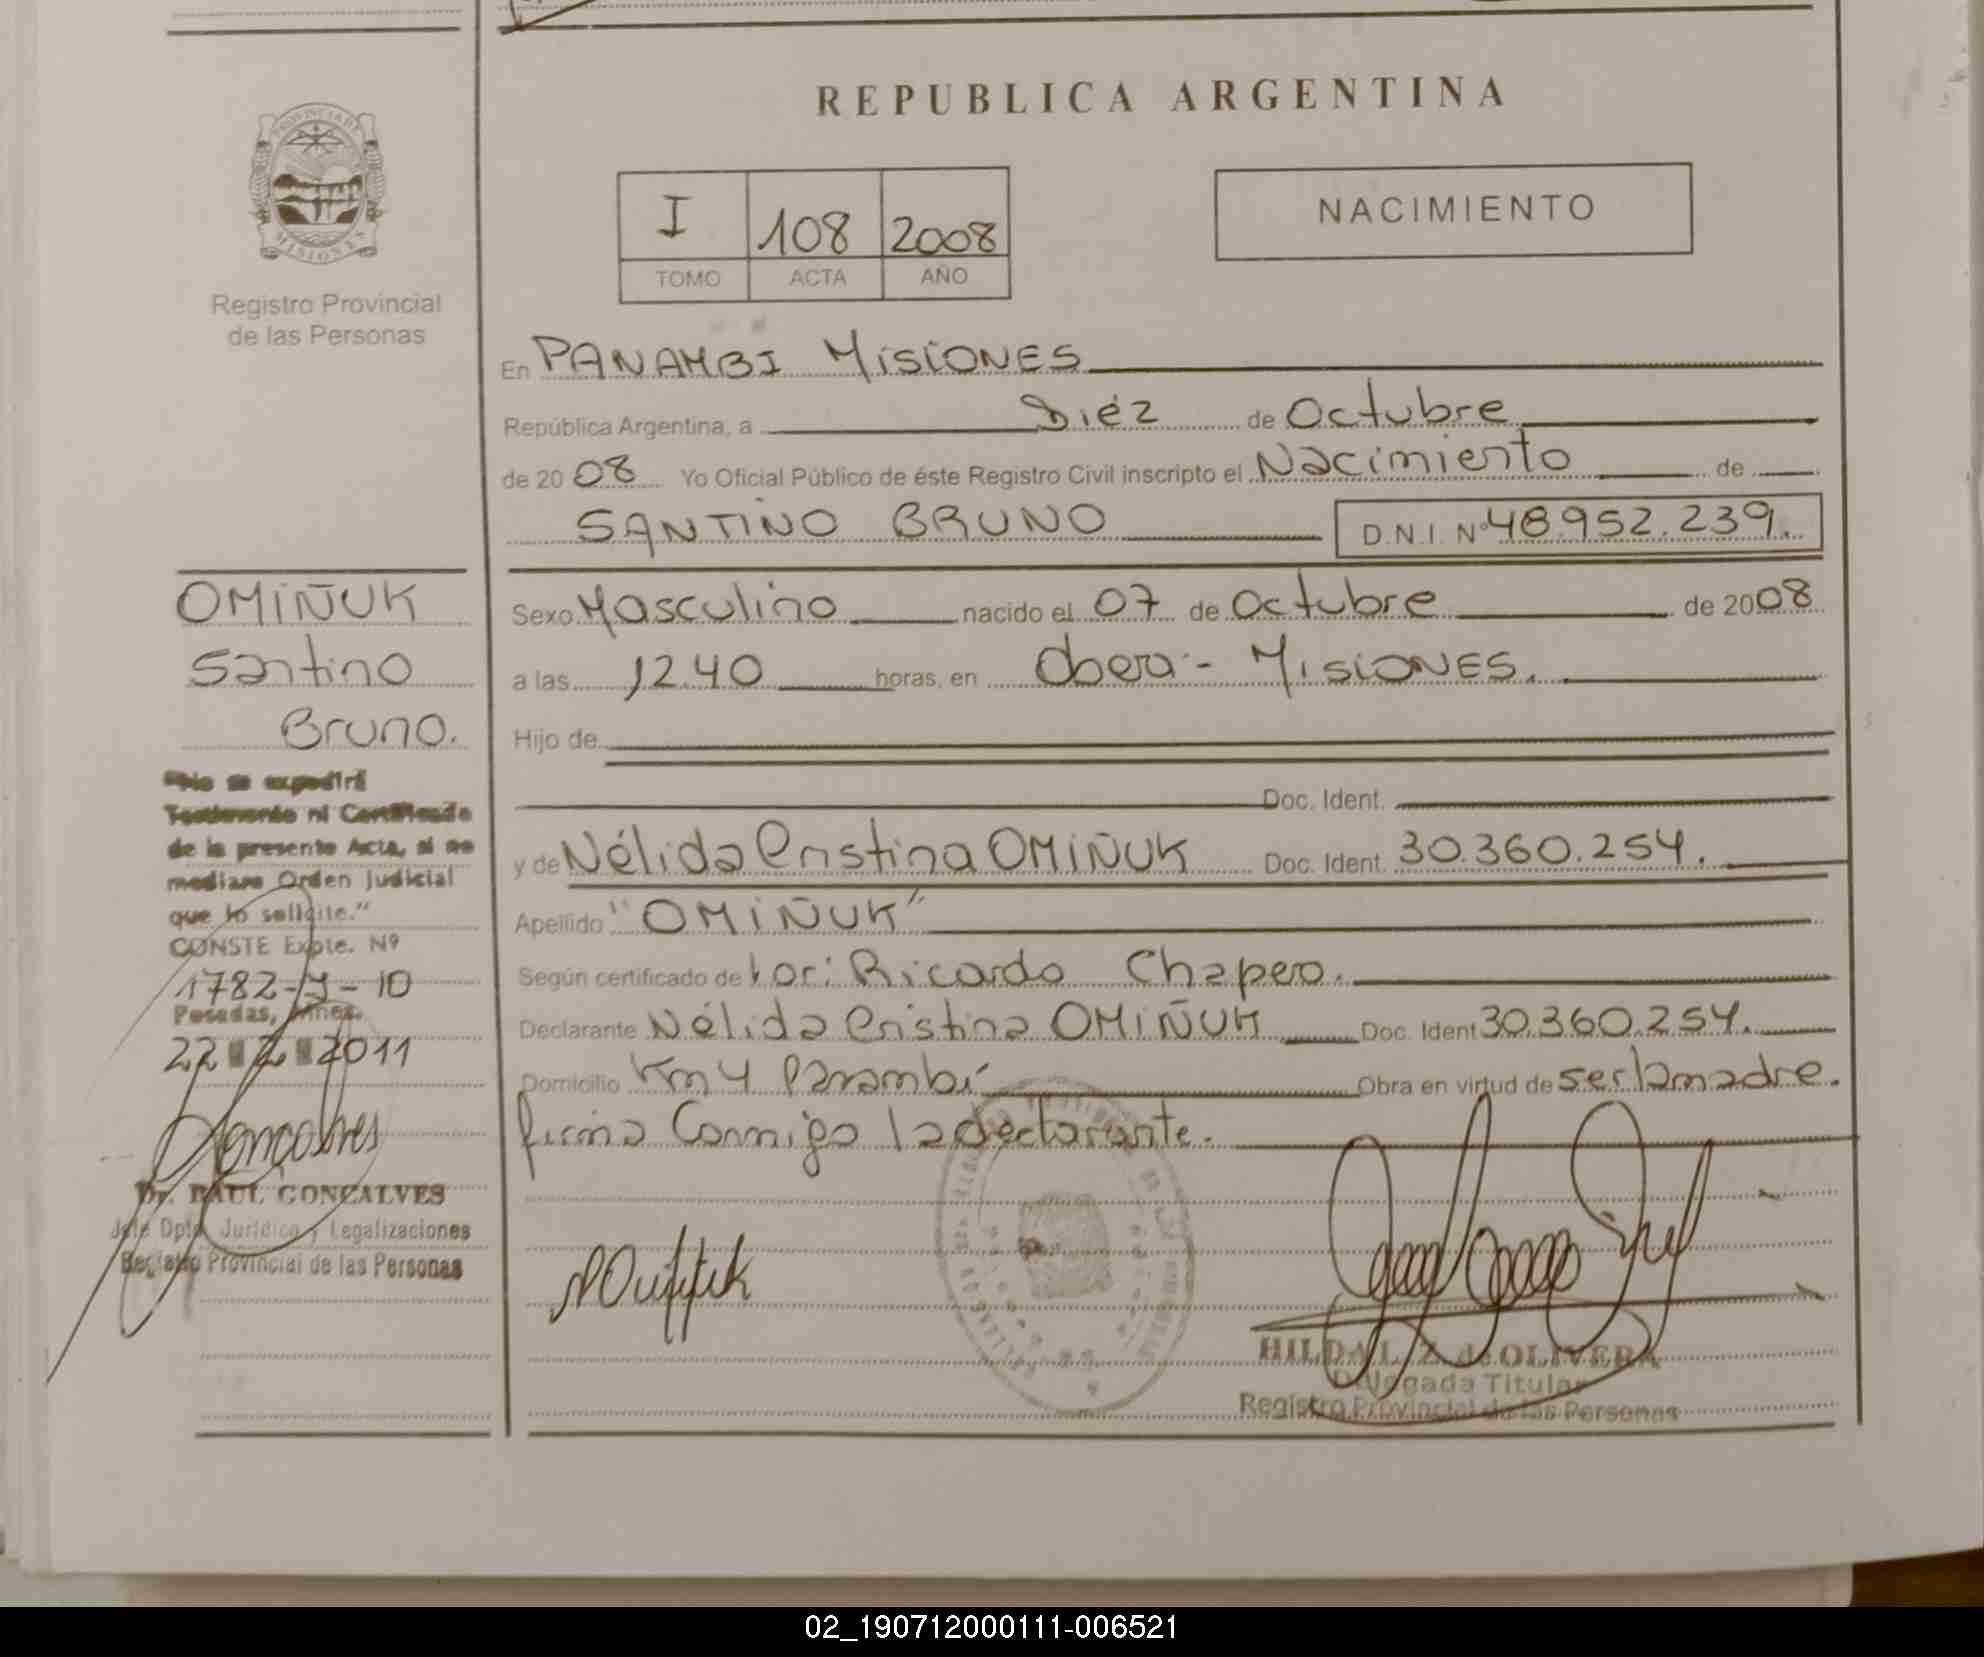 REPUBLICA ARGENTINA
I 108 2008
TOMO ACTA AÑO
NACIMIENTO
PROVINCIA DE
MISIONES
Registro Provincial
de las Personas
En PANAMBI MISIONES
República Argentina, a Diéz de Octubre
de 20 08 Yo Oficial Público de éste Registro Civil inscripto el Nacimiento de
SANTINO BRUNO D.N.I. Nº 48.952.239.
Sexo Masculino nacido el 07 de Octubre de 2008
a las 12.40 horas, en Obera - MISIONES.
Hijo de
Doc. Ident.
y de Nélida Cristina OMIÑUK Doc. Ident. 30.360.254.
Apellido "OMIÑUK"
Según certificado de Ricardo Chapero.
Declarante Nélida Cristina OMIÑUK Doc. Ident 30.360.254.
Domicilio Km 4 Panambí Obra en virtud de ser la madre.
firma Conmigo la declarante.
OMIÑUK
Santino
Bruno.
"No se expedirá
Testimonio ni Certificado
de la presente Acta, si no
mediare Orden Judicial
que lo solicite."
CONSTE Expte. Nº
1782- - 10
Posadas, Mnes.
22 2 2011
Dr. RAUL GONCALVES
Jefe Dpto. Jurídico y Legalizaciones
Registro Provincial de las Personas
HILDA L. Z. de OLIVERA
Delegada Titular
Registro Provincial de las Personas
02_190712000111-006521